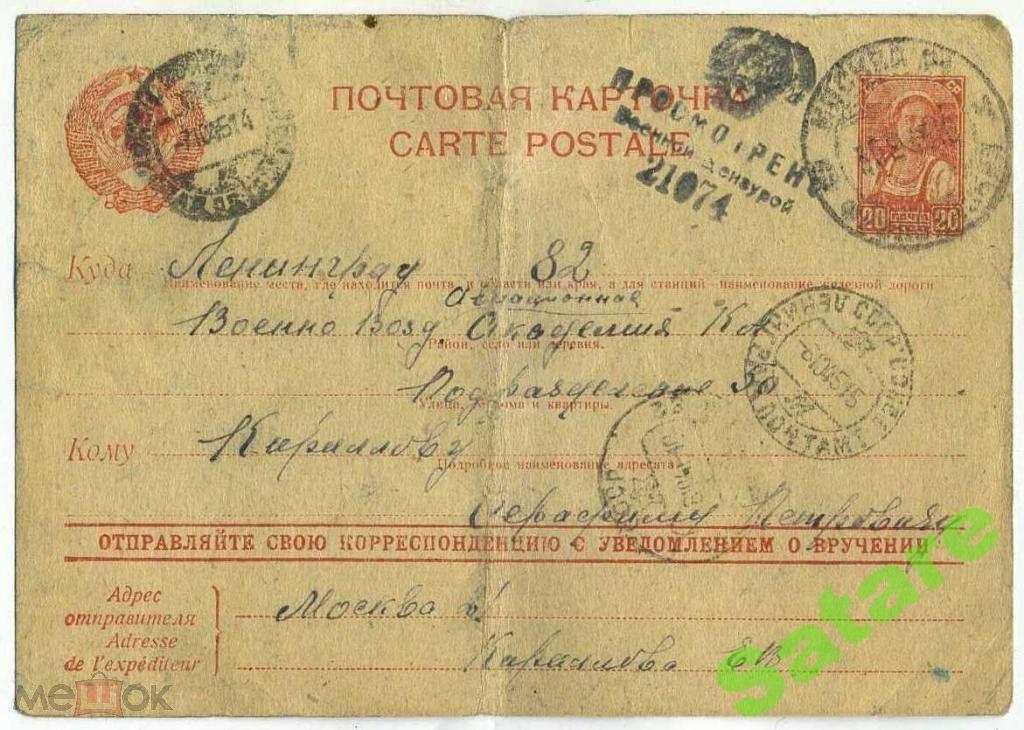 ПОЧТОВАЯ КАРТОЧКА
CARTE POSTALE
ПРОСМОТРЕНО
Военной Цензурой
21074
20 ПОЧТА 20
Куда Ленинград 82
Наименование места, где находится почта, и области или края, а для станций - наименование железной дороги
Авиационная
Военно Возд Академия Ка
Район, село или деревня.
Подразделение 50
Улица, № дома и квартиры.
Кому Кириллову
Подробное наименование адресата
Серафиму Петровичу
ОТПРАВЛЯЙТЕ СВОЮ КОРРЕСПОНДЕНЦИЮ С УВЕДОМЛЕНИЕМ О ВРУЧЕНИИ
Адрес
отправителя
Adresse
de l'expéditeur
Москва
Кириллова ЕВ
ЛЕНИНГРАД ПОЧТАМТ
-6.10.45.15
-7.10.45.14
МОСКВА
Satare
мешок